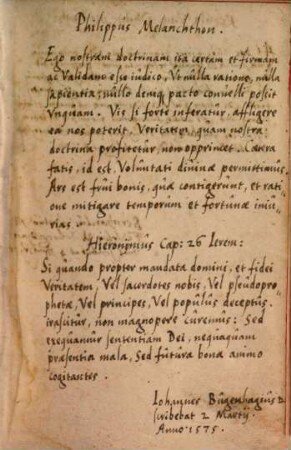 Philippus Melanchthon.
Ego nostram doctrinam ita certam et firmam
ac validam esse iudico, Ut nulla ratione, nulla
sapientia, nullo deniq pacto convelli possit
Unquam. Vis si forte inferatur, affligere
ea nos poterit, Veritatem, quam nostra
doctrina profitetur, non opprimet. Cætera
fatis, id est, Voluntati divinæ permittimus.
Ars est frui bonis, quæ contigerunt, et rati
one mitigare temporum et fortunæ iniu
rias.
Hieronymus Cap: 26 Jerem:
Si quando propter mandata domini, et fidei
Veritatem, Vel sacerdotes nobis, Vel pseudopro
phetæ, Vel principes, Vel populus deceptus
irascitur, non magnopere curemus: Sed
exequamur sententiam Dei, nequaquam
præsentia mala, Sed futura bona animo
cogitantes.
Iohannes Bugenhagius D
scribebat 2 Martij
Anno 1575.